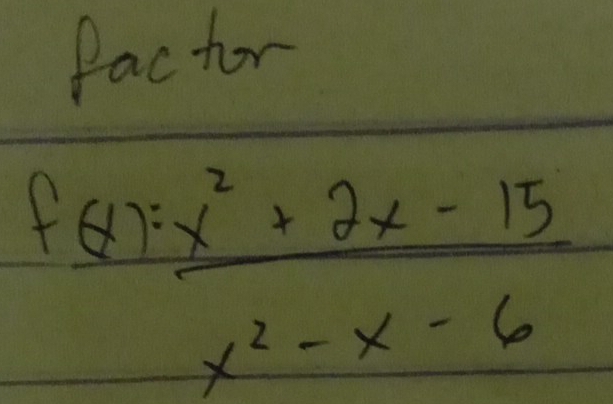 factor
f(x) = x² + 2x - 15
x² - x - 6